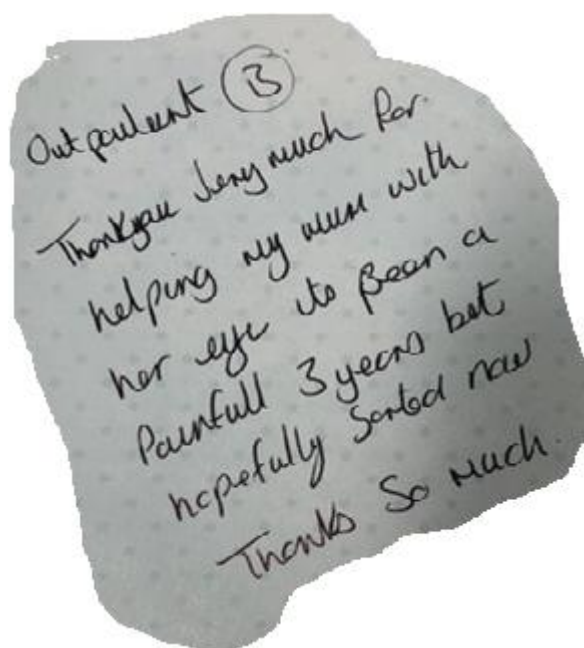 Outpatient B
Thankyou very much for
helping my mum with
her eye its been a
Painfull 3 years but
hopefully sorted now
Thanks So Much.